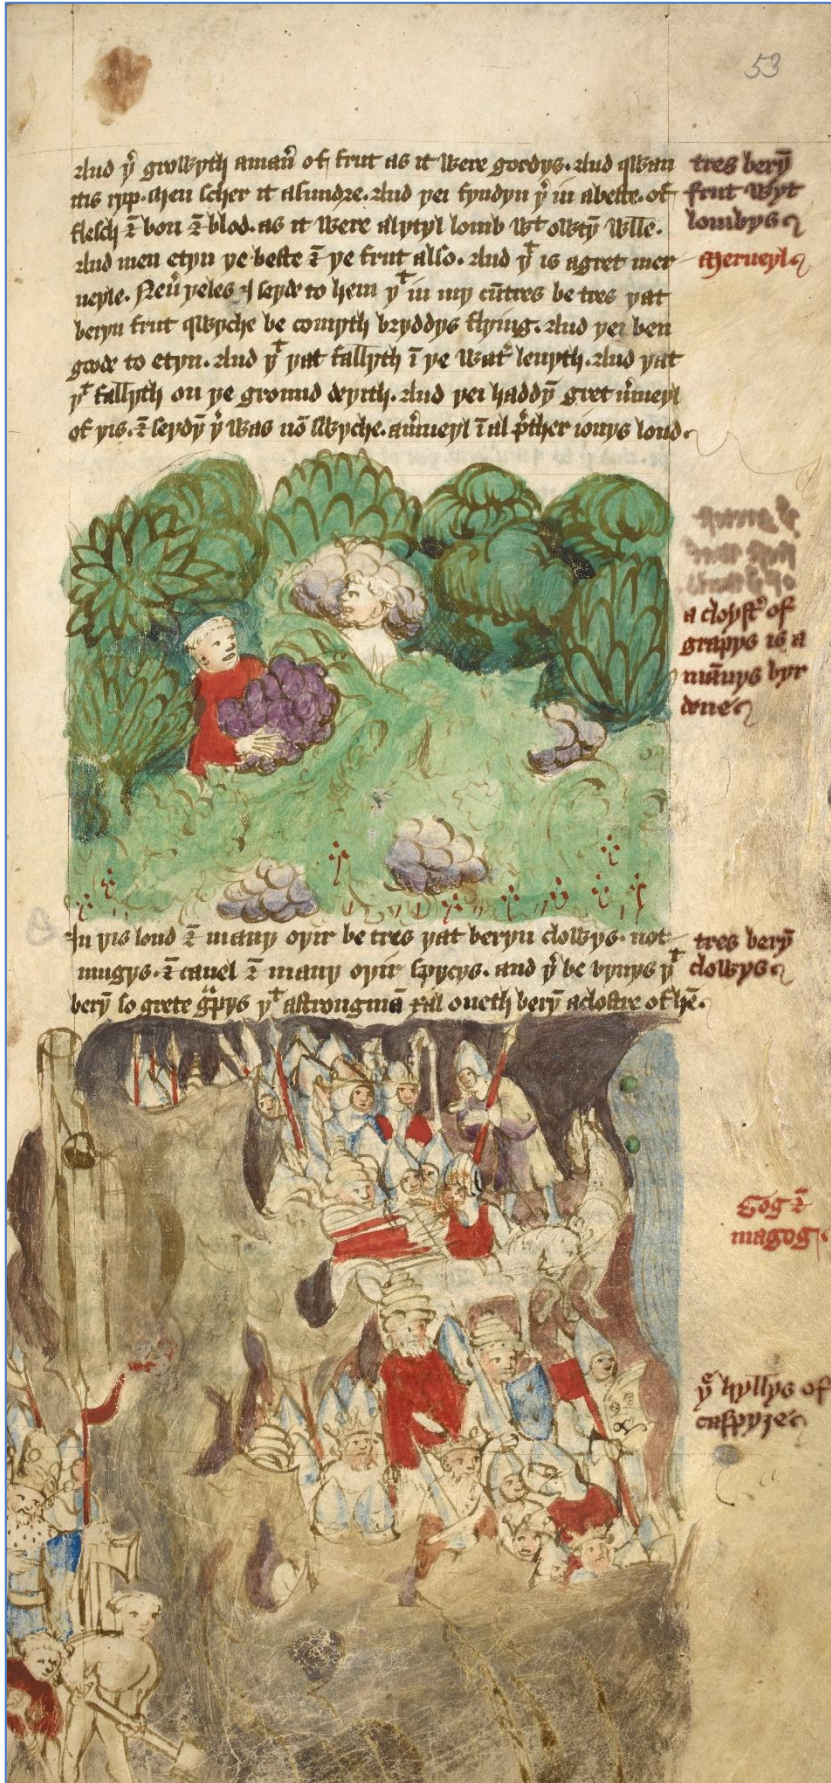 53
And y̾ growyth aman̄ of frut as it were gordys. And qwan
itis ryp. men scher it asundre. And yei fyndyn y̾ in abeste. of
flesch ⁊ bon ⁊ blod. as it were alytyl lomb wᵗ owtȳ wlle.
And men etyn ye beste ⁊ ye frut also. And yᵗ is agret mer
ueyle. Neu̾ yeles I seyde to hem yᵗ in my cūtres be tres yat
beryn frut qwyche be comyth bryddys flying. And yei ben
gode to etyn. And yᵗ yat fallyth ī ye wat̾ leuyth. And yat
yᵗ fallyth on ye ground deyith. And yei haddȳ gret m̾ueyl
of yis. ⁊ seydȳ y̾ was nō swyche. am̾ueyl ī al p̾ther ionys lond.
tres berȳ
frut wyt
lombys
Merueyl
a cloystᵉ of
grapys is a
mānys byr
dene
In yis lond ⁊ many oyir be tres yat beryn clowys. not
mugys. ⁊ canel ⁊ many oyir spycys. and y̾ be vynys yᵗ
berȳ so grete gᵃpys yᵗ astrongmā xal oneth berȳ aclostre of hē.
tres berȳ
clowys
Gog ⁊
magog
yᵉ hyllys of
caspyze